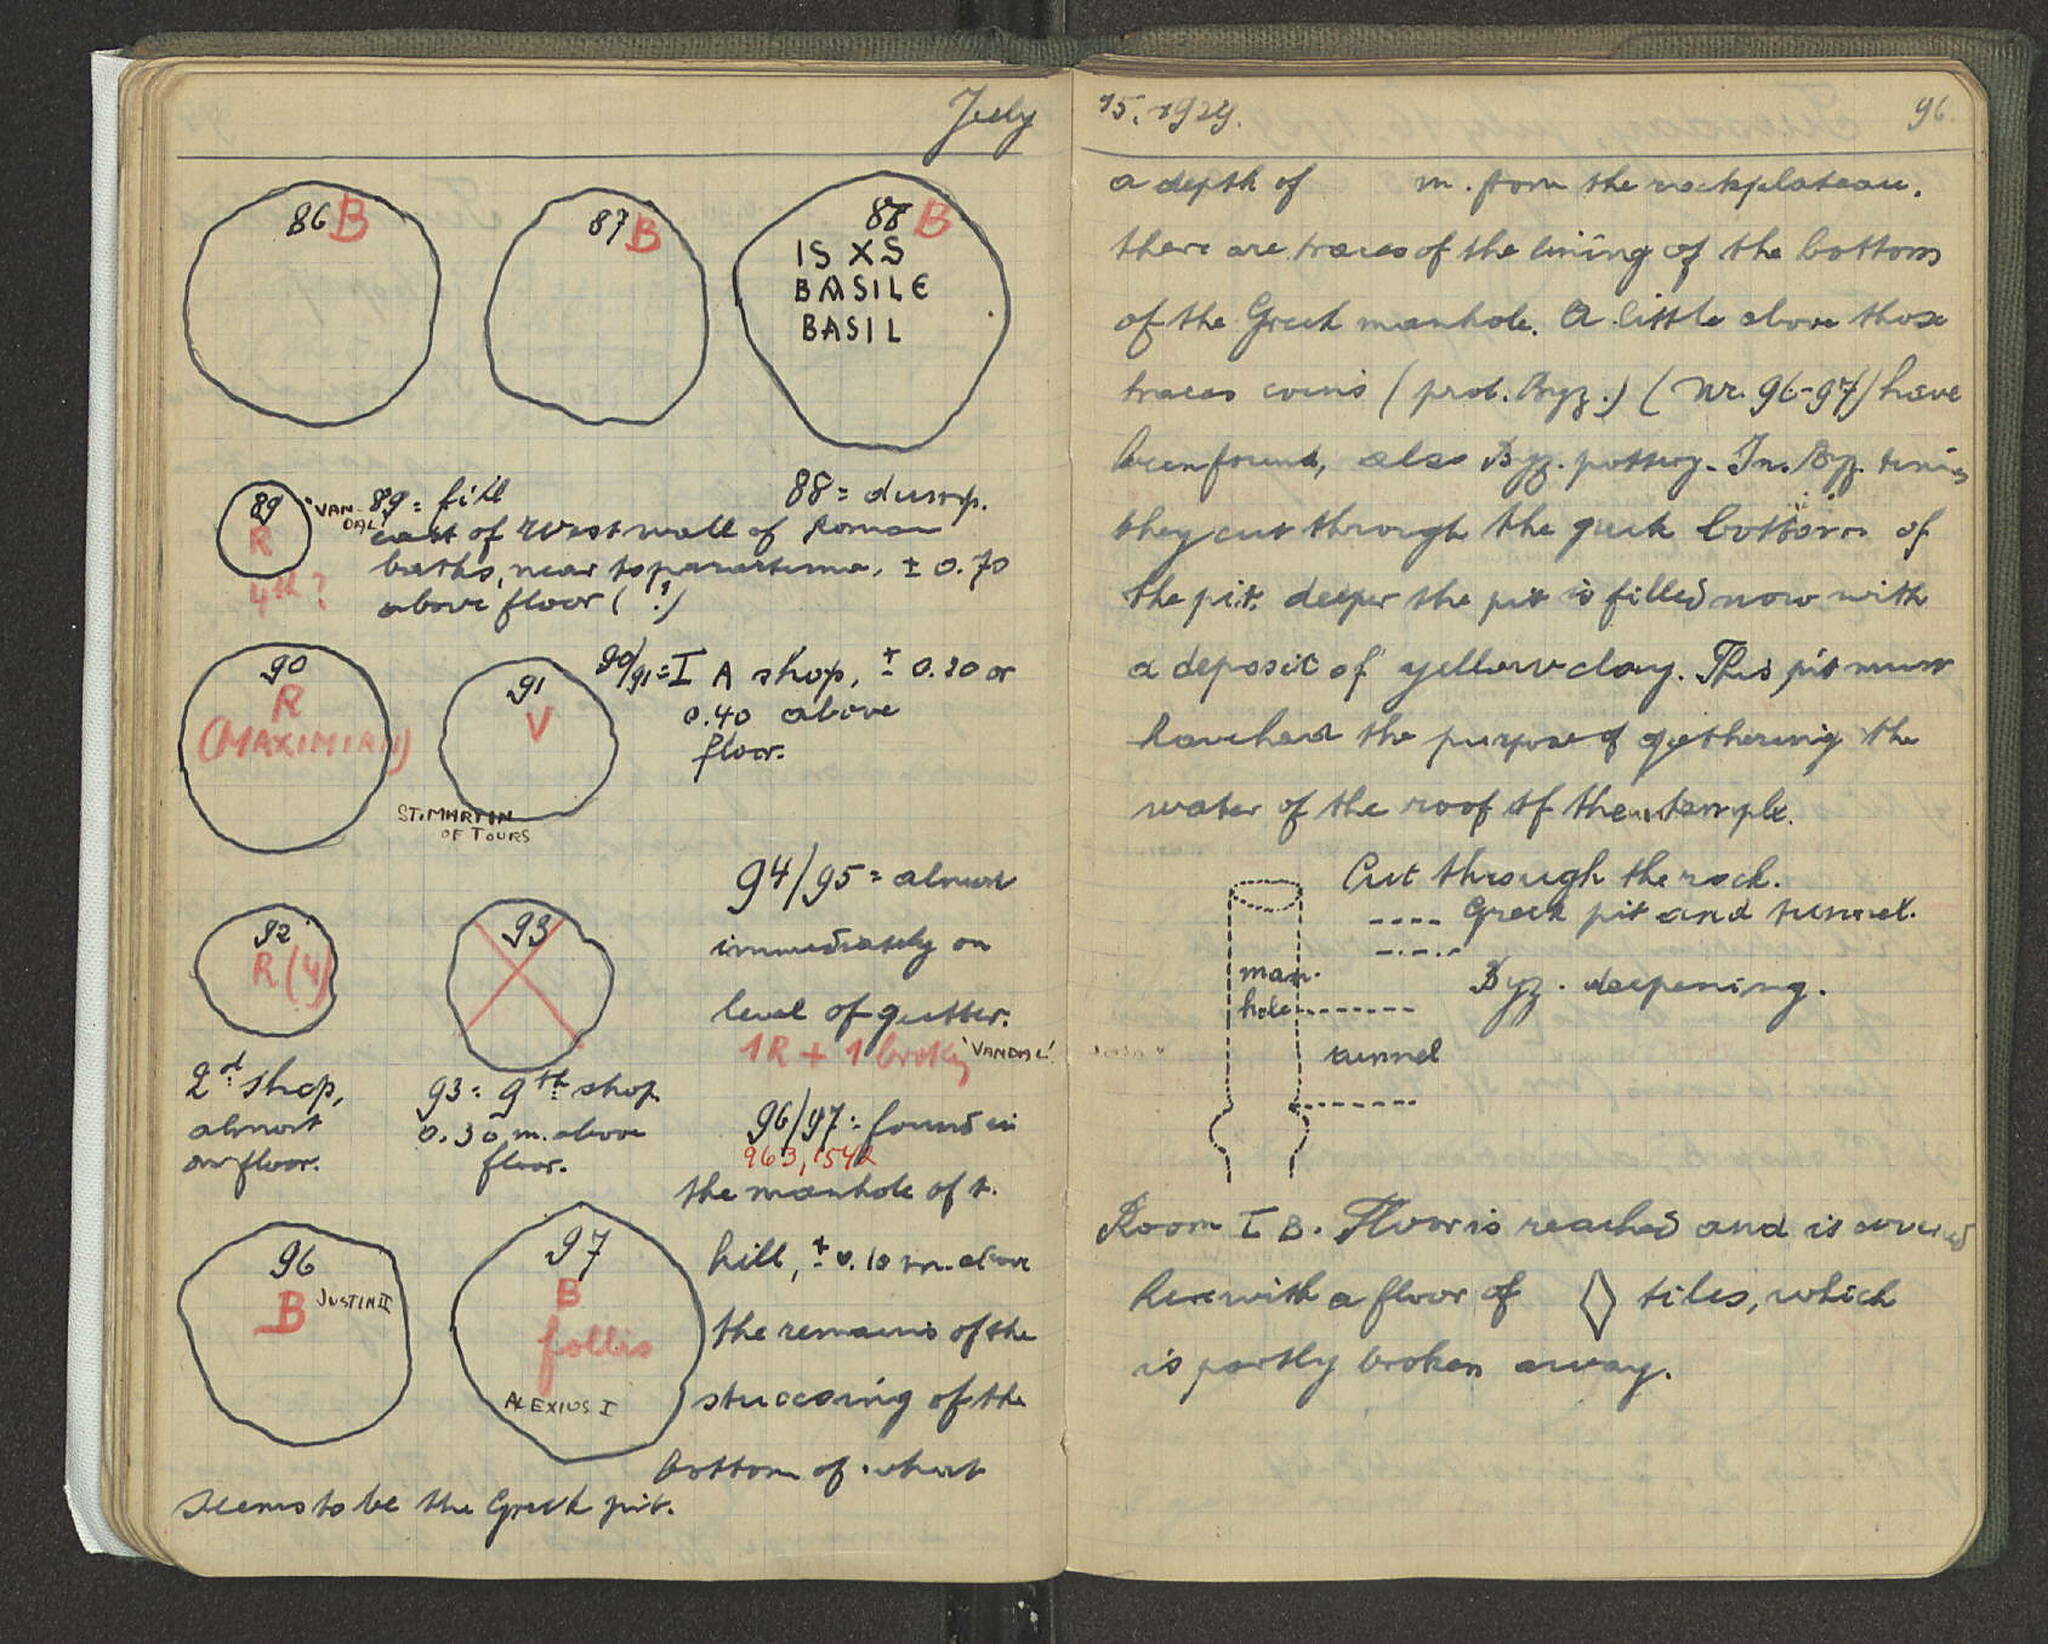 July
86 B
87 B
88 B
IS XS
BASILE
BASIL
89
R
4th ?
"VAN
DAL"
89 = fill
88 = dump.
east of West wall of Roman
baths, near to parastema, ± 0.70
above floor (?)
90
R
(MAXIMIAN)
91
V
90/91 = I A shop, ± 0.30 or
0.40 above
floor.
ST. MARTIN
OF TOURS
92
R (4)
93
94/95 = almost
immediately on
level of gutter.
1R + 1 broken "VANDAL"
2d shop,
almost
on floor.
93 = 9th shop
0.30 m. above
floor.
96/97 = found in
963, 1542
the manhole of t.
hill, ± 0.10 m. above
the remains of the
stuccoing of the
bottom of what
seems to be the Greek pit.
96
B
JUSTIN II
97
B
follis
ALEXIUS I
15. 1929.
96
a depth of m. from the rockplateau.
there are traces of the lining of the bottom
of the Greek manhole. A little above those
traces coins (prob. Byz.) (Nr. 96-97) have
been found, also Byz. pottery. In Byz. times
they cut through the greek bottom of
the pit. deeper the pit is filled now with
a deposit of yellow clay. This pit must
have had the purpose of gathering the
water of the roof of the temple.
Cut through the rock.
---- Greek pit and tunnel.
-.-.-
Byz. deepening.
man-
hole
tunnel
Room I B. Floor is reached and is covered
here with a floor of ◊ tiles, which
is partly broken away.